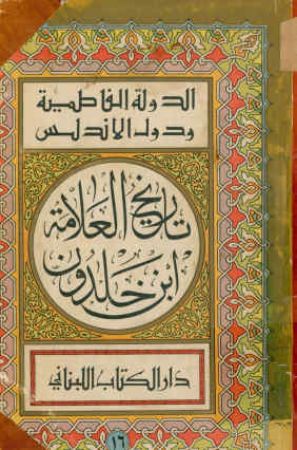 الدولة الفاطمية
ودول الاندلس
تاريخ العلامة
ابن خلدون
دار الكتاب اللبناني
١٦